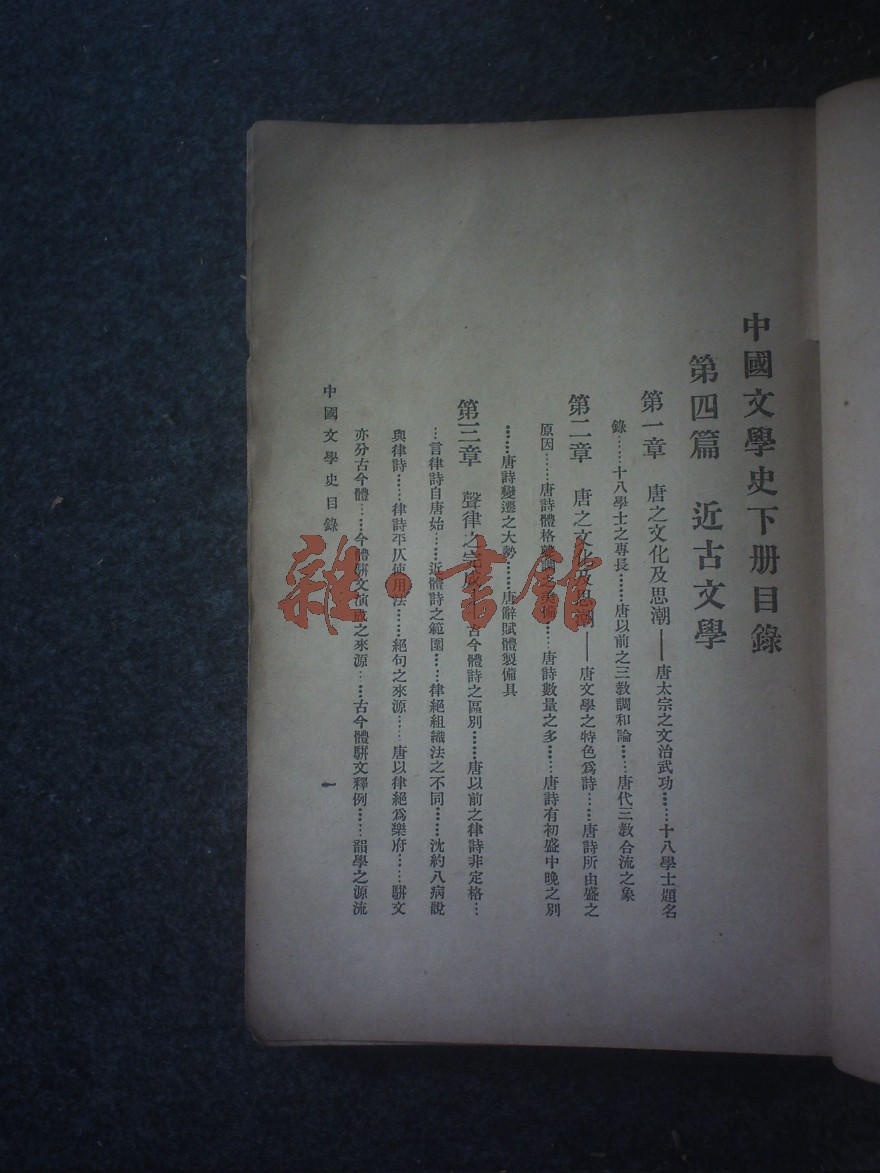 中國文學史下册目錄
第四篇 近古文學
第一章 唐之文化及思潮——唐太宗之文治武功……十八學士題名
錄……十八學士之專長……唐以前之三教調和論……唐代三教合流之象
第二章 唐之文化及思潮——唐文學之特色爲詩……唐詩所由盛之
原因……唐詩體格……唐詩數量之多……唐詩有初盛中晚之別
……唐詩變遷之大勢……唐辭賦體製備具
第三章 聲律之完成 古今體詩之區別……唐以前之律詩非定格…
…言律詩自唐始……近體詩之範圍……律絕組織法之不同……沈約八病說
與律詩……律詩平仄使用法……絕句之來源……唐以律絕爲樂府……駢文
亦分古今體……今體駢文演成之來源……古今體駢文釋例……韻學之源流
中國文學史目錄
一
雜·書館